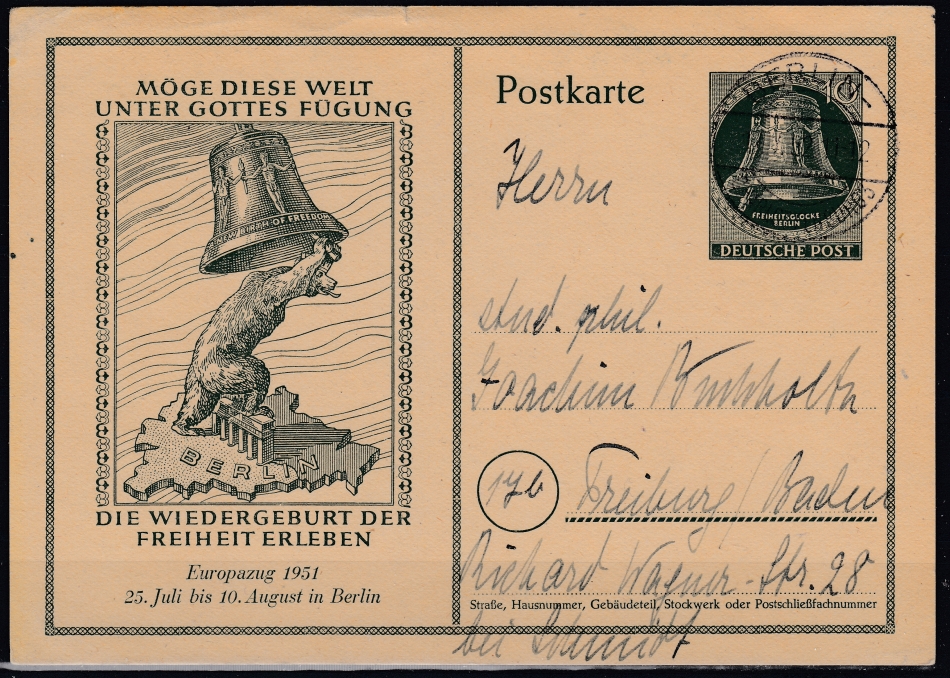 MÖGE DIESE WELT
UNTER GOTTES FÜGUNG
NEW BIRTH OF FREEDOM
BERLIN
DIE WIEDERGEBURT DER
FREIHEIT ERLEBEN
Europazug 1951
25. Juli bis 10. August in Berlin
Postkarte
10
BERLIN-
FREIHEITSGLOCKE
BERLIN
DEUTSCHE POST
Herrn
stud. phil.
Joachim Buchholtz
17b Freiburg / Baden
Richard Wagner-Str. 28
Straße, Hausnummer, Gebäudeteil, Stockwerk oder Postschließfachnummer
bei Schmidt